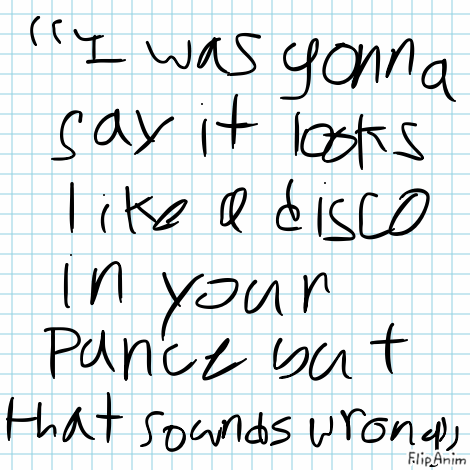 "I was gonna
say it looks
like a disco
in your
Pance but
that sounds wrong"
FlipAnim